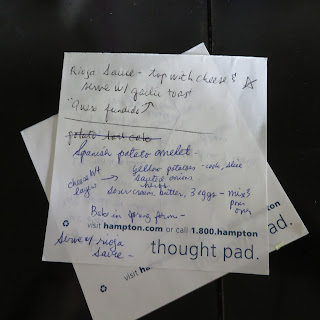 Rioja Sauce - top with cheese &
serve w/ garlic toast
"Queso fundido"
Spanish potato omelet -
cheese btwn layers → yellow potatoes - cook, slice
sauteed onions
Sour cream, butter, 3 eggs - mix & pour over
Bake in spring form -
visit hampton.com or call 1.800.hampton
Serve w/ rioja
Sauce -
thought pad.
visit ha
thought pad.